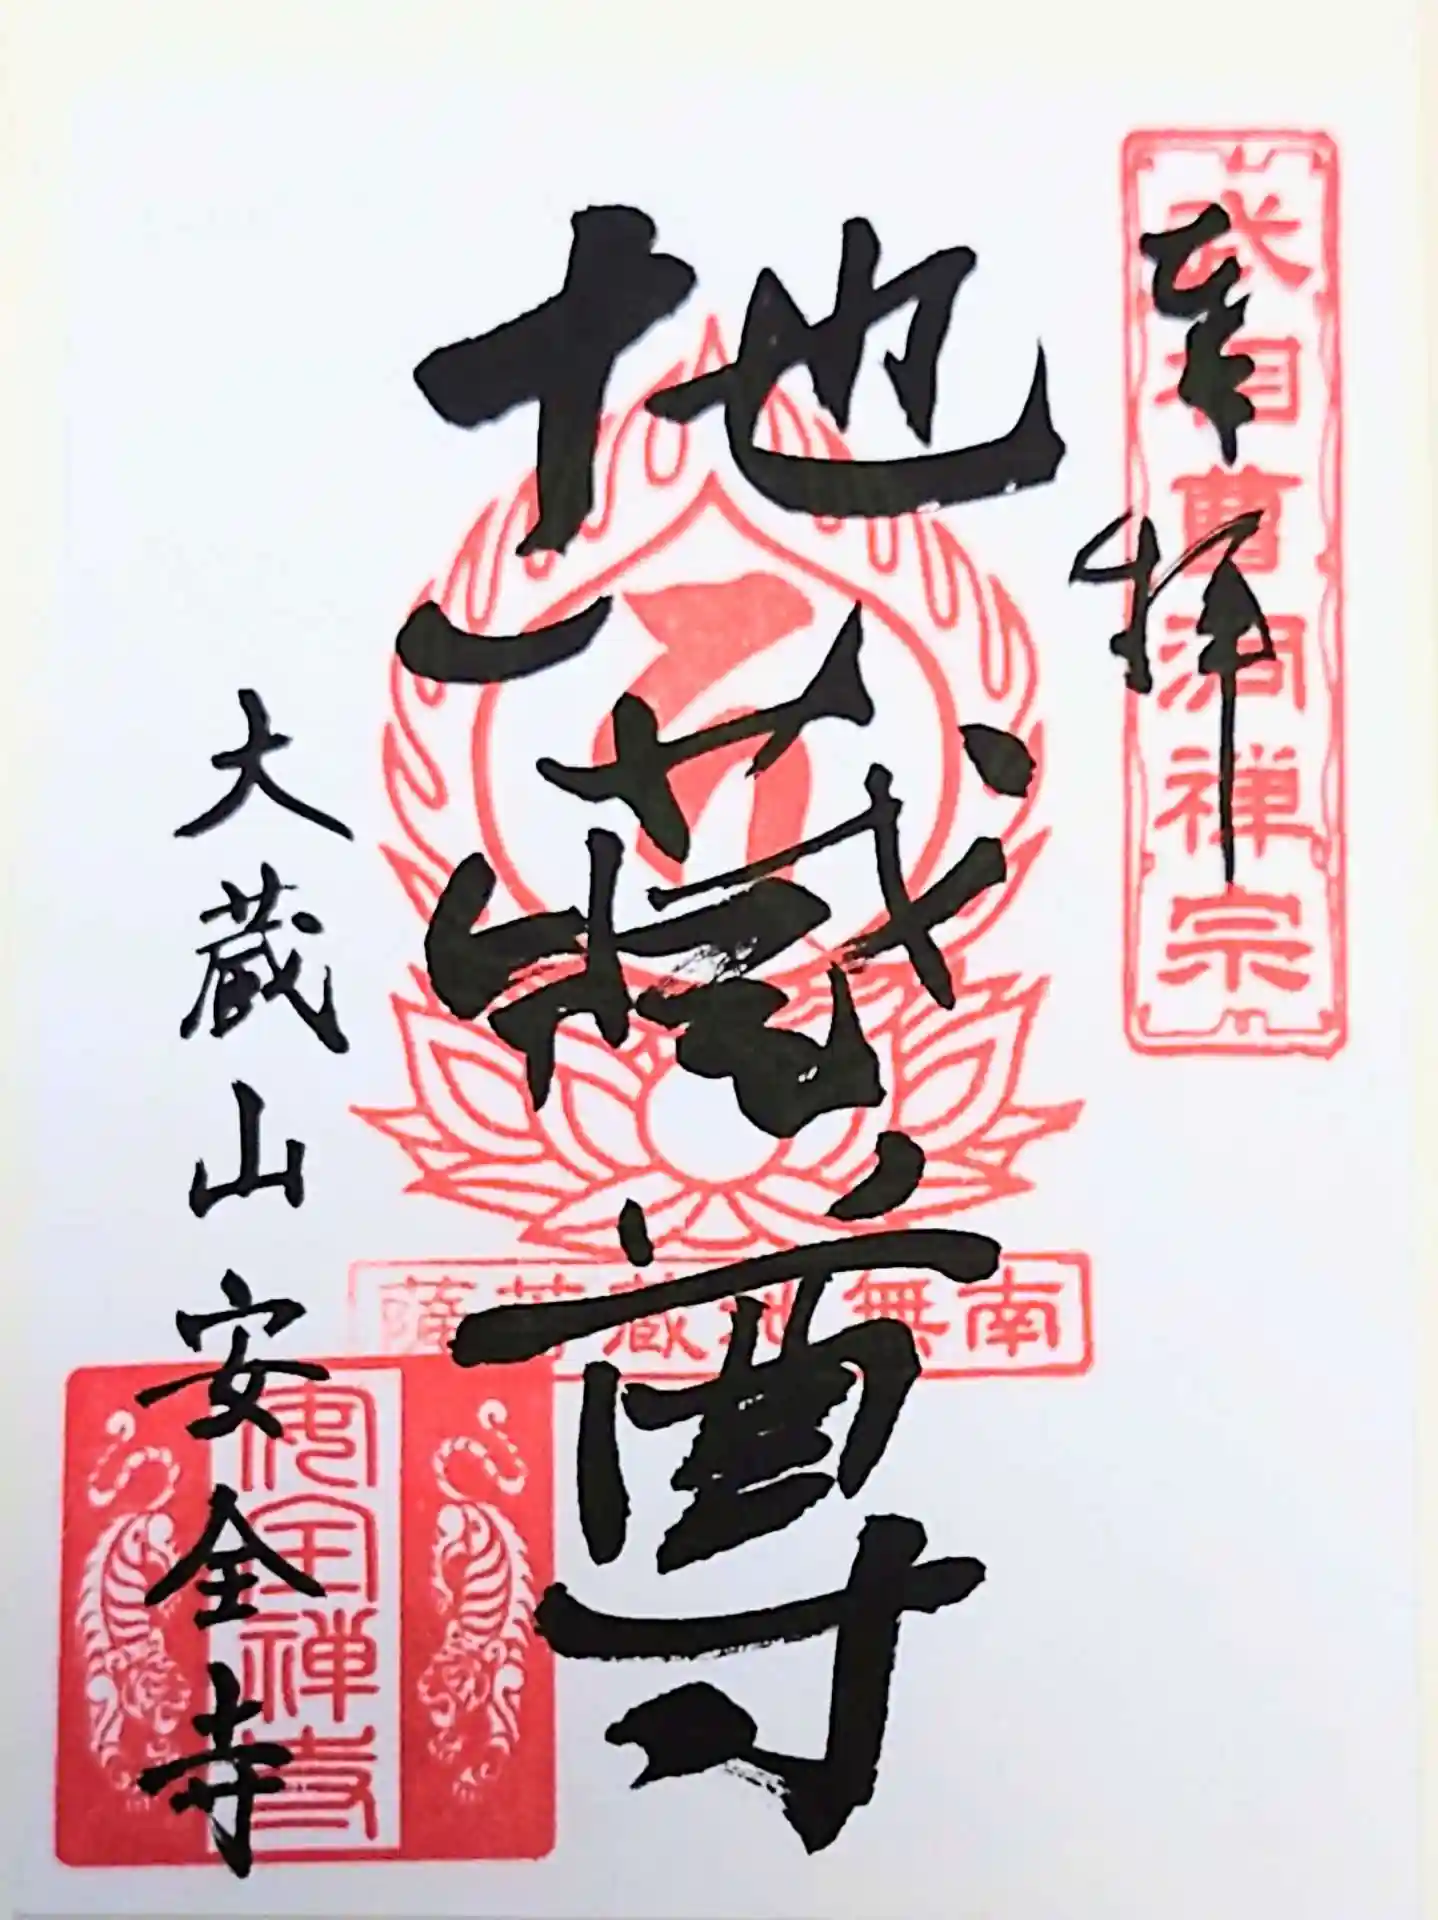 武相曹洞禅宗
奉拝
地蔵尊
南無地蔵菩薩
大蔵山安全寺
安全禅寺